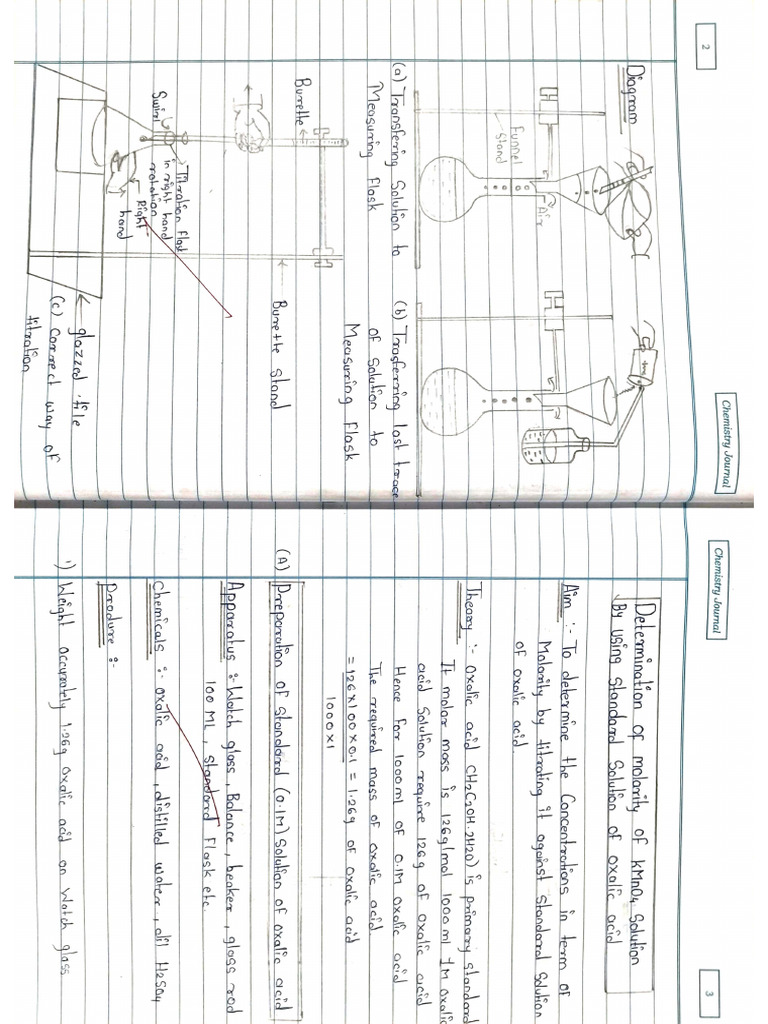 2
Chemistry Journal
Diagram
Funnel
Stand
Air
(a) Transfering Solution to
Measuring Flask
(b) Trasferring last trace
of Solution to
Measuring Flask
Burette
Burette Stand
Titration flask
in right hand
rotation
Swirl
Right
hand
glazzed tile
(c) Correct way of
titration
Chemistry Journal
3
Determination of molarity of kMnO4 Solution
By using Standard Solution of oxalic acid
Aim :- To determine the Concentrations in term of
Molarity by titrating it against standard Solution
of oxalic acid
Theory :- oxalic acid CH2C2OH.2H2O) is primary standard
It molar mass is 126g/mol 1000ml 1M oxalic
acid solution require 126g of oxalic acid
Hence for 1000ml of 0.1M oxalic acid
The required mass of oxalic acid
= 126×100×0.1 = 1.26g of oxalic acid
1000×1
(A) Preparation of Standard (0.1M) Solution of oxalic acid
Apparatus :- Watch glass, Balance, beaker, glass rod
100 ML, Standard Flask etc.
Chemicals :- oxalic acid, distilled water, dil H2SO4
Produre :-
1) Weight accurately 1.26g oxalic acid on Watch glass